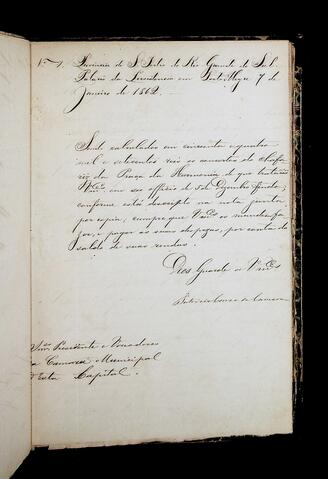 N.º 1. Provincia de S. Pedro do Rio Grande do Sul.
Palacio da Presidencia em Porto Alegre 7 de
Janeiro de 1862.
Sendo calculados em cincoenta e quatro
mil e setecentos reis os concertos do chafa
riz da Praça da Harmonia, de que
V.mces em seo officio de 5 de Dezembro findo,
conforme está descripto na nota junta
por copia, cumpre que V.mces os mandem fa
zer, e pagar as suas despezas, por conta do
saldo de suas rendas.
Deos Guarde a V.mces
Snres. Presidente e Vereadores
da Camara Municipal
d'esta Capital.